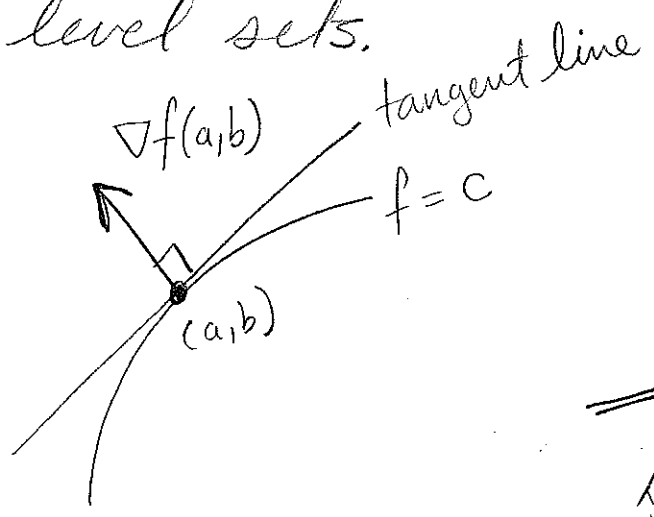 level sets.
tangent line
∇f(a,b)
f = C
(a,b)